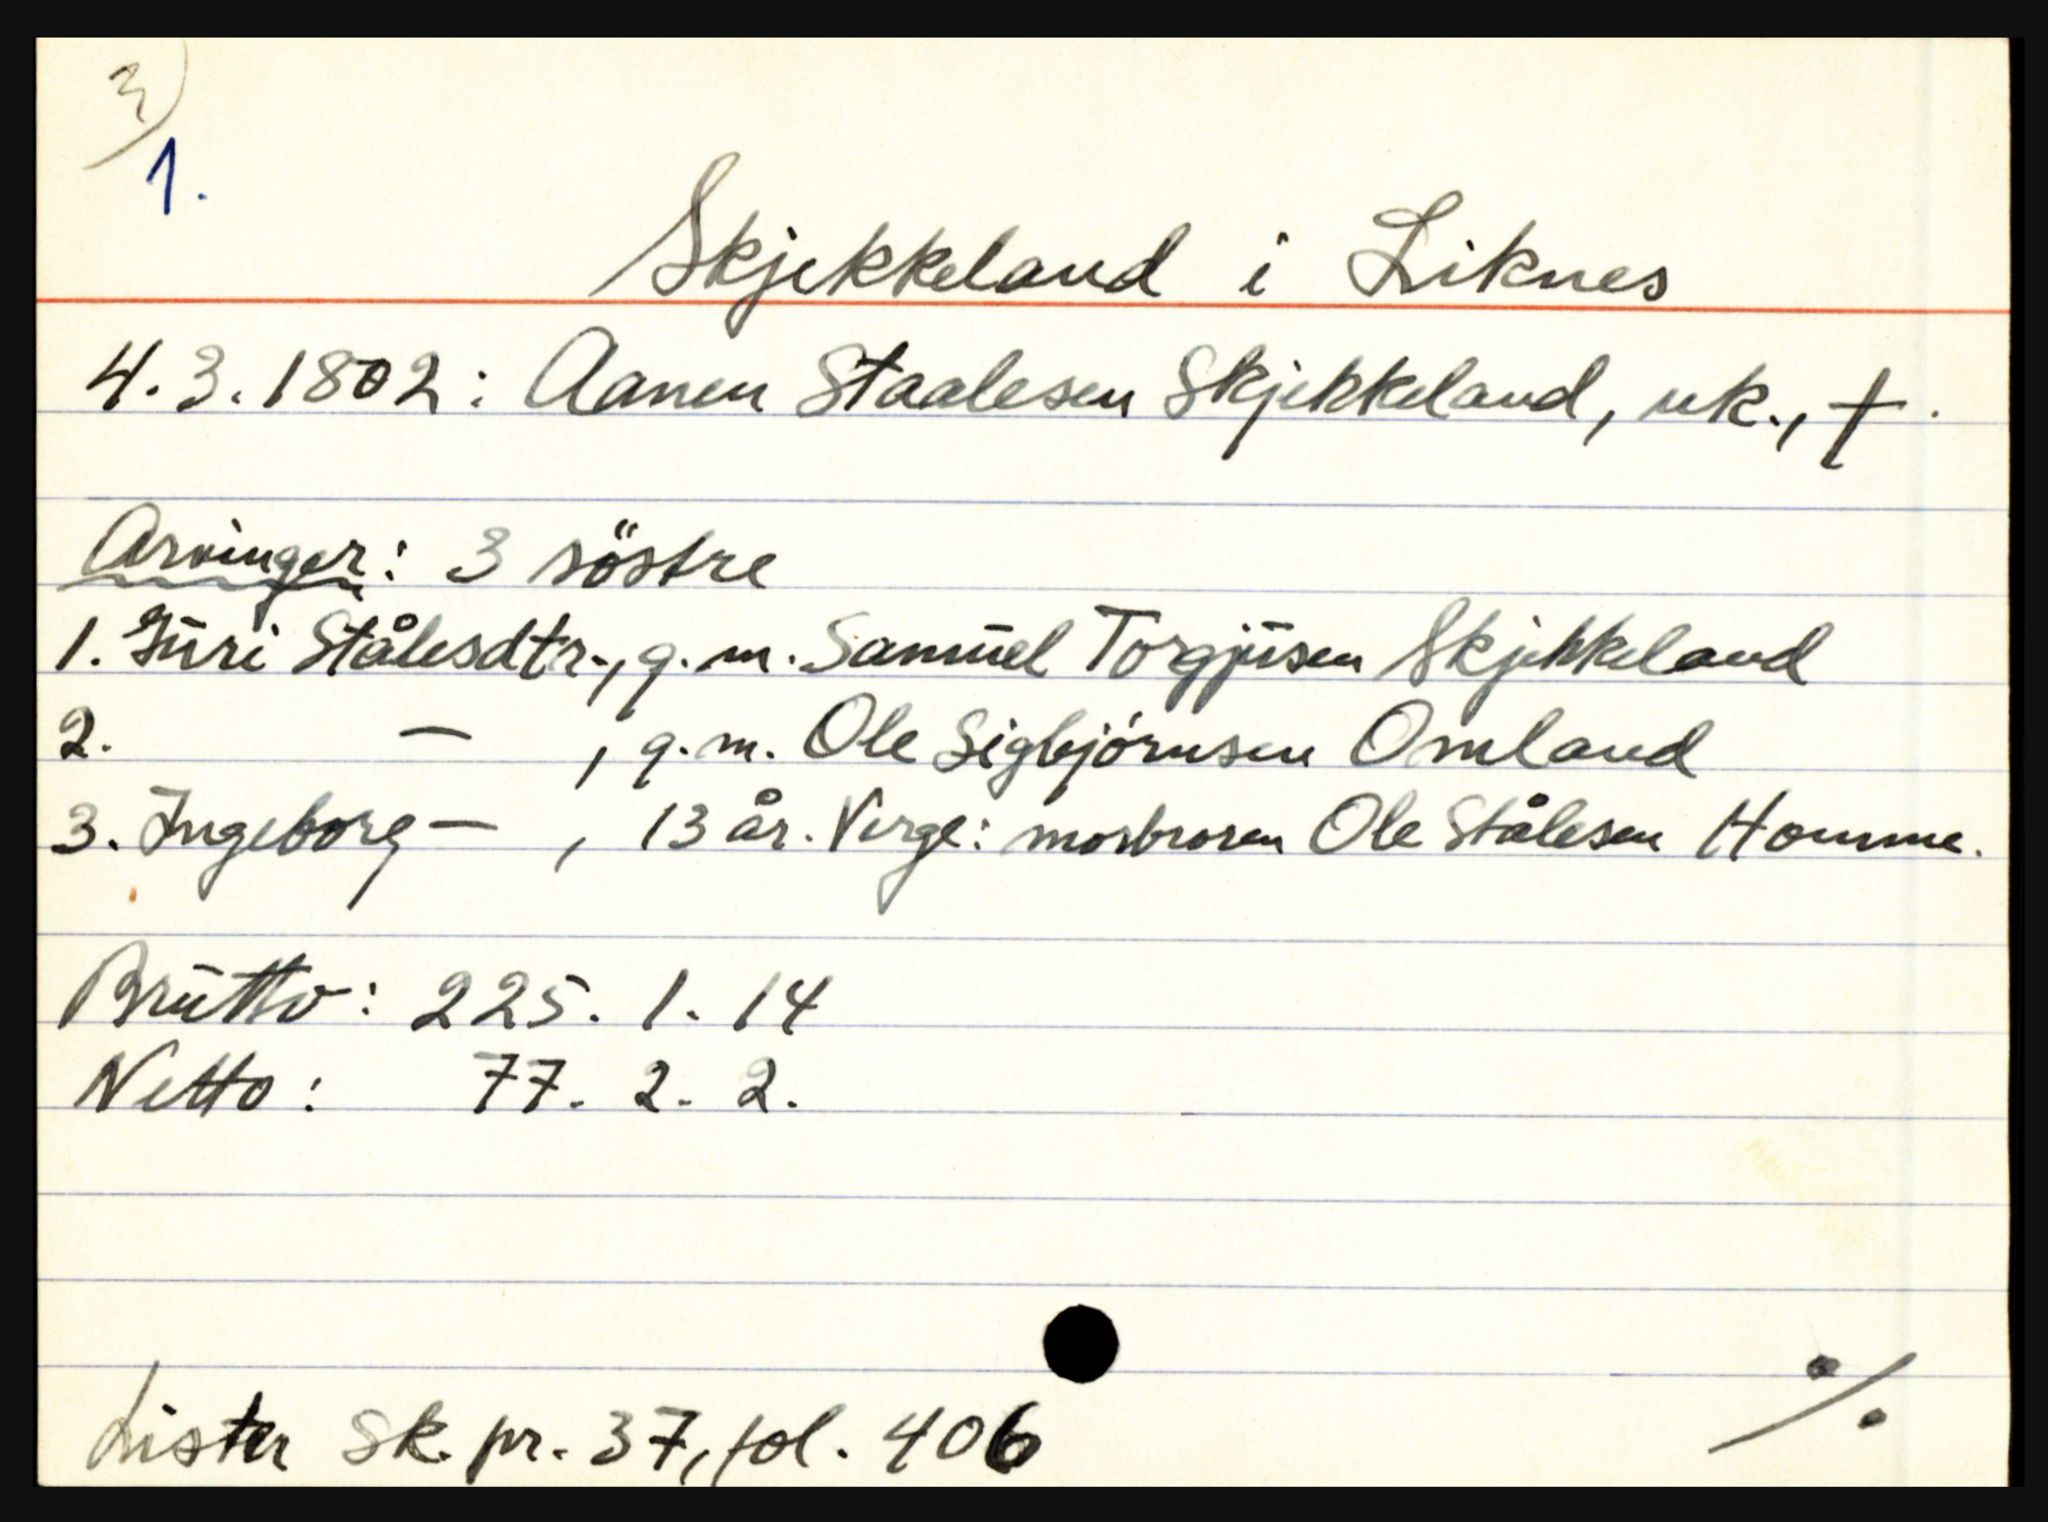 3)
1.
Skjekkeland i Liknes
4.3.1802: Aanen Staalesen Skjekkeland, uk., †.
Arvinger: 3 söstre
1. Guri Stålesdtr., g.m. Samuel Torgjusen Skjekkeland
2. — , g.m. Ole Sigbjørnsen Omland
3. Ingeborg — , 13 år. Verge: morbroren Ole Stålesen Homme.
Brutto: 225. 1. 14
Netto: 77. 2. 2.
Lister sk. pr. 37, fol. 406
%